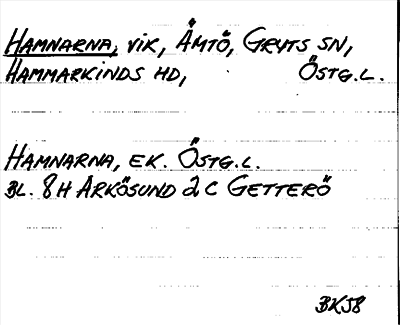 HAMNARNA, VIK, ÅMTÖ, GRYTS SN,
HAMMARKINDS HD, ÖSTG.L.
HAMNARNA, EK. ÖSTG.L.
BL. 8H ARKÖSUND 2C GETTERÖ
BKJ8